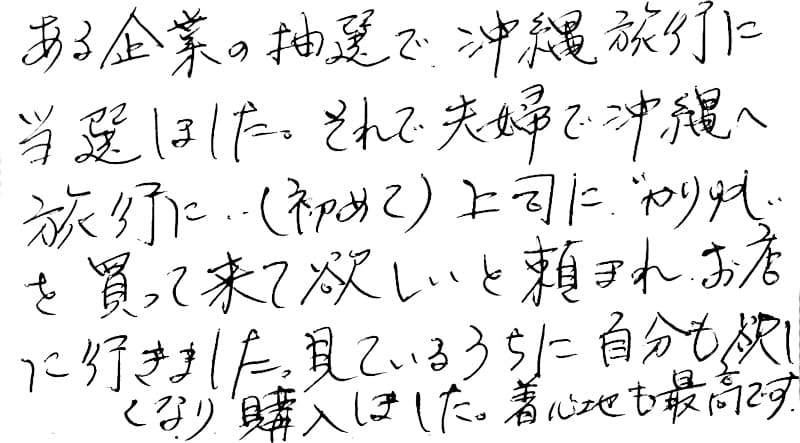 ある企業の抽選で沖縄旅行に
当選しました。それで夫婦で沖縄へ
旅行に‥(初めて)上司に"かりゆし"
を買って来て欲しいと頼まれお店
に行きました。見ているうちに自分も欲し
くなり購入しました。着心地も最高です。